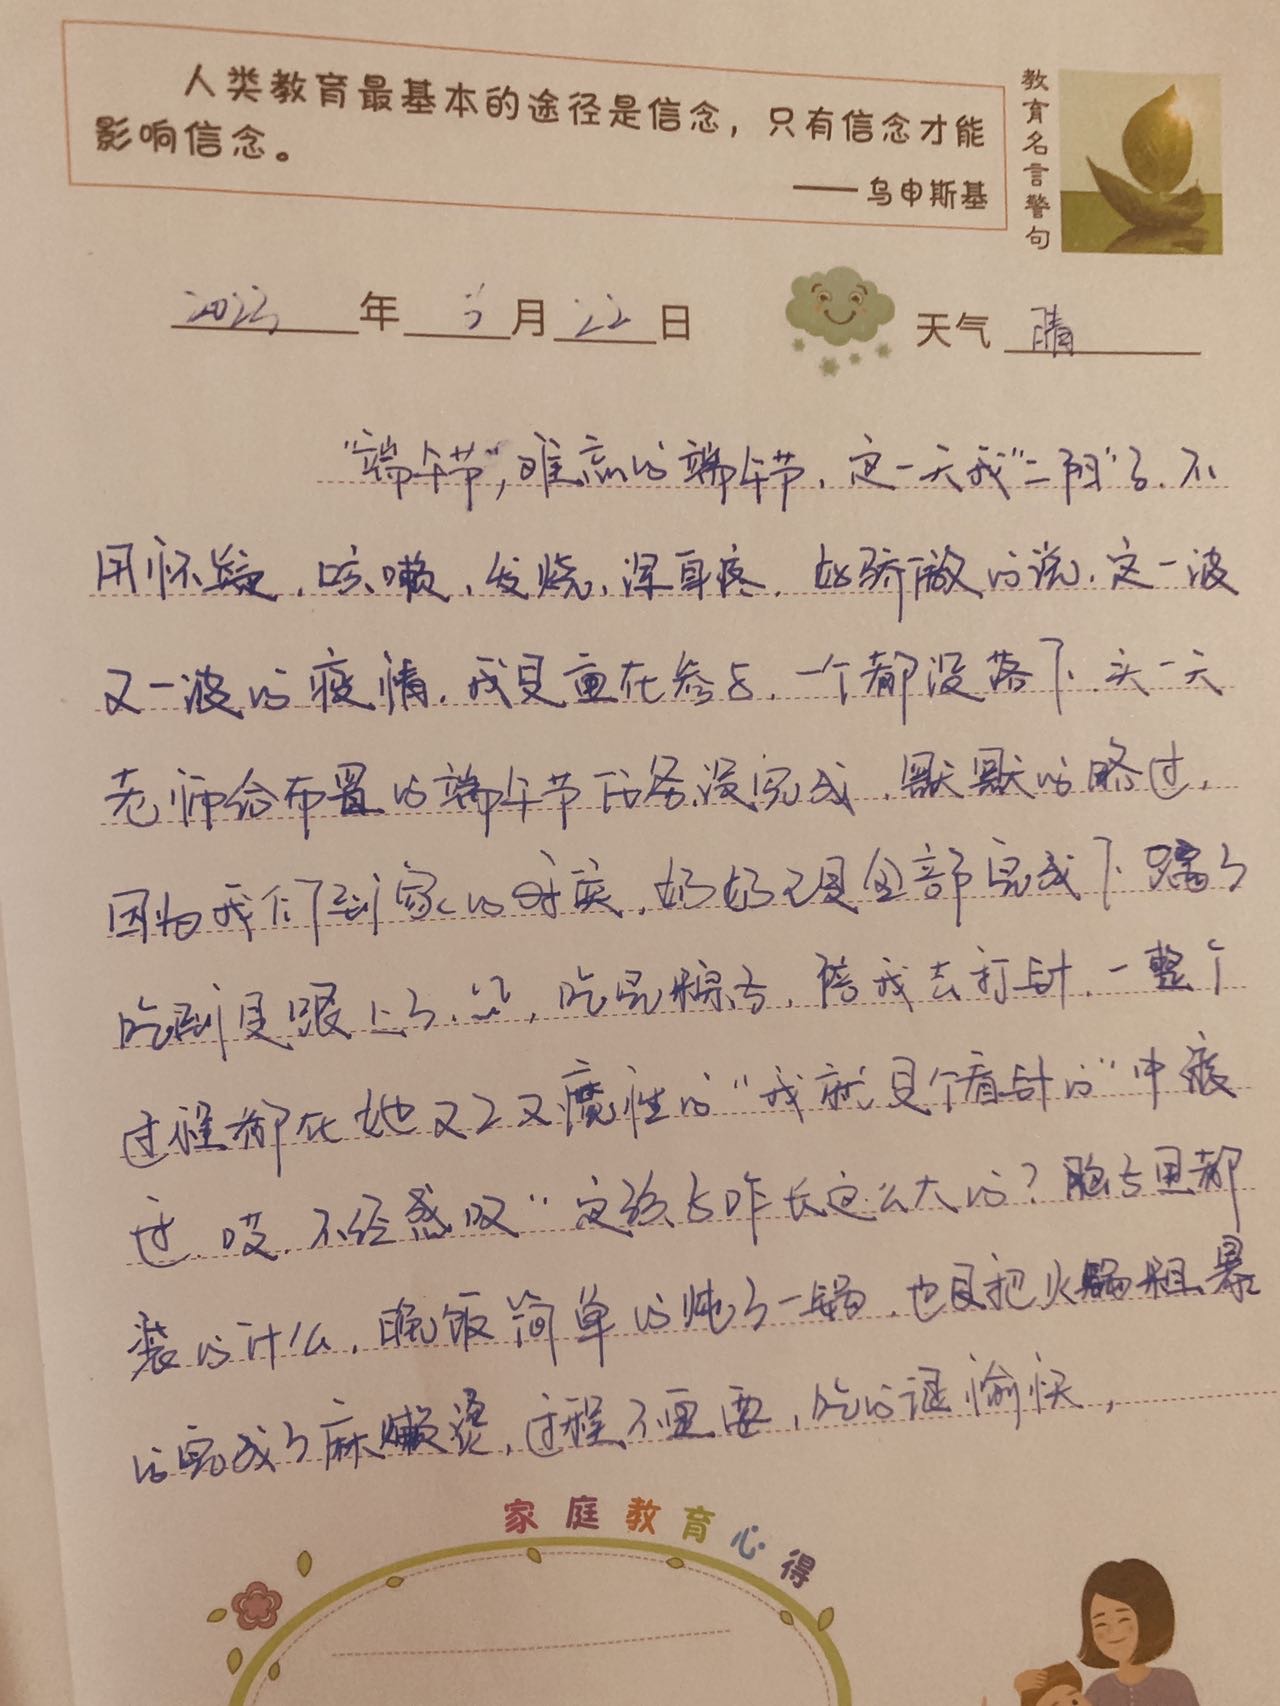 人类教育最基本的途径是信念，只有信念才能
影响信念。
——乌申斯基
教育名言警句
2023年 月22日
天气 晴
“端午节”，难忘的端午节，这一天我“二阳”了，不
用怀疑，咳嗽，发烧，浑身疼，好骄傲的说，这一波
又一波的疫情，我是重在参与，一个都没落下，头一天
老师给布置的端午节任务没完成，默默的略过，
因为我们到家的时候，奶奶已是全部完成下锅了
吃到是跟上了，吃完粽子，陪我去打针，一整个
过程都在她又又又魔性的“我就是个看针的”中度
过，哎，不经感叹“这孩子咋长这么大的？脑子里都
装的什么，晚饭简单的炖了一锅，也是把火锅粗暴
的完成了麻辣烫，过程不重要，吃的挺愉快，
家庭教育心得